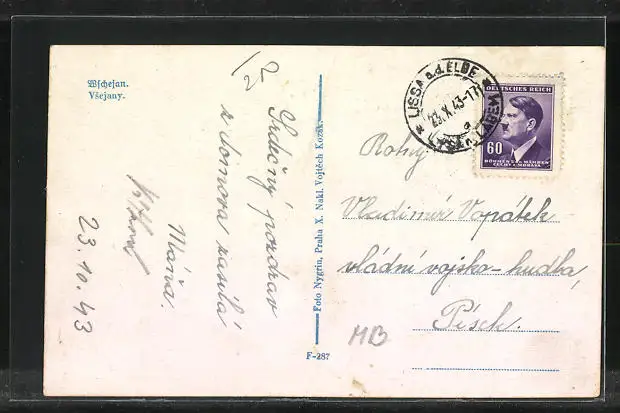 Wschejan.
Všejany.
Srdečný pozdrav
z domova zasílá
Máňa.
23.10.43
Foto Nygrín, Praha X. Nakl. Vojtěch Kozák.
F-287
LISSA a.d. ELBE
23.X.43-17
DEUTSCHES REICH
60
BÖHMEN UND MÄHREN
ČECHY A MORAVA
Vladimír Vopátek
vládní vojsko-hudba,
Písek.
MB